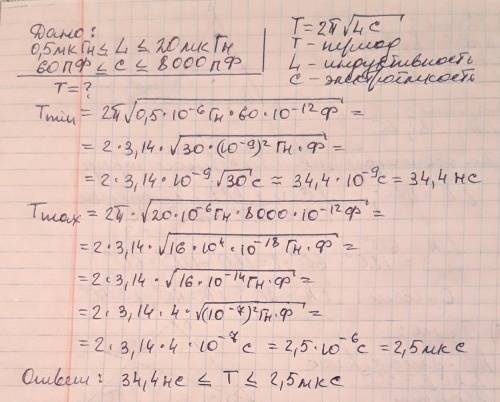 Дано:
0,5 мкГн ≤ L ≤ 20 мкГн
60 пФ ≤ C ≤ 8000 пФ
T = ?
T = 2π√LC
T - период
L - индуктивность
C - электроёмкость
Tmin = 2π√0,5·10⁻⁶Гн·60·10⁻¹²Ф =
= 2·3,14·√30·(10⁻⁹)² Гн·Ф =
= 2·3,14·10⁻⁹√30 с ≈ 34,4·10⁻⁹с = 34,4 нс
Tmax = 2π·√20·10⁻⁶Гн·8000·10⁻¹²Ф =
= 2·3,14·√16·10⁴·10⁻¹⁸Гн·Ф =
= 2·3,14·√16·10⁻¹⁴Гн·Ф =
= 2·3,14·4·√(10⁻⁷)²Гн·Ф =
= 2·3,14·4·10⁻⁷с = 2,5·10⁻⁶с = 2,5 мкс
Ответ: 34,4 нс ≤ T ≤ 2,5 мкс